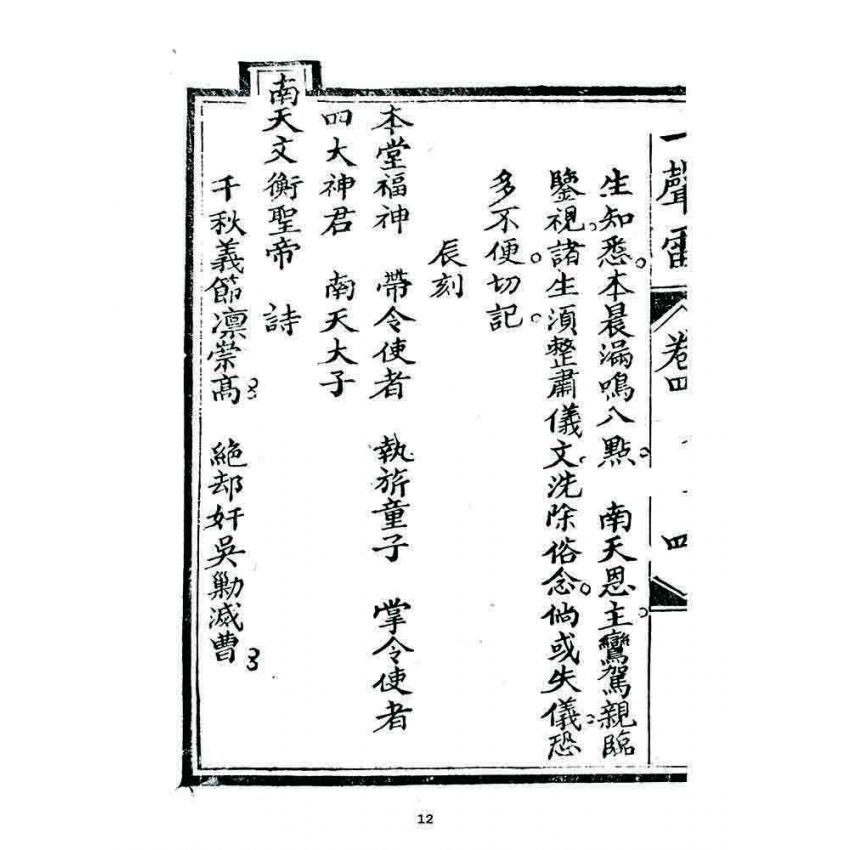 一聲雷 卷四 十四
生知悉。本晨漏鳴八點。 南天恩主鸞駕親臨
鑒視。諸生須整肅儀文。洗除俗念。倘或失儀。恐
多不便。切記。
辰刻
本堂福神 帶令使者 執旂童子 掌令使者
四大神君 南天大子
南天文衡聖帝 詩
千秋義節凛崇高 絕却奸吳勦滅曹
12